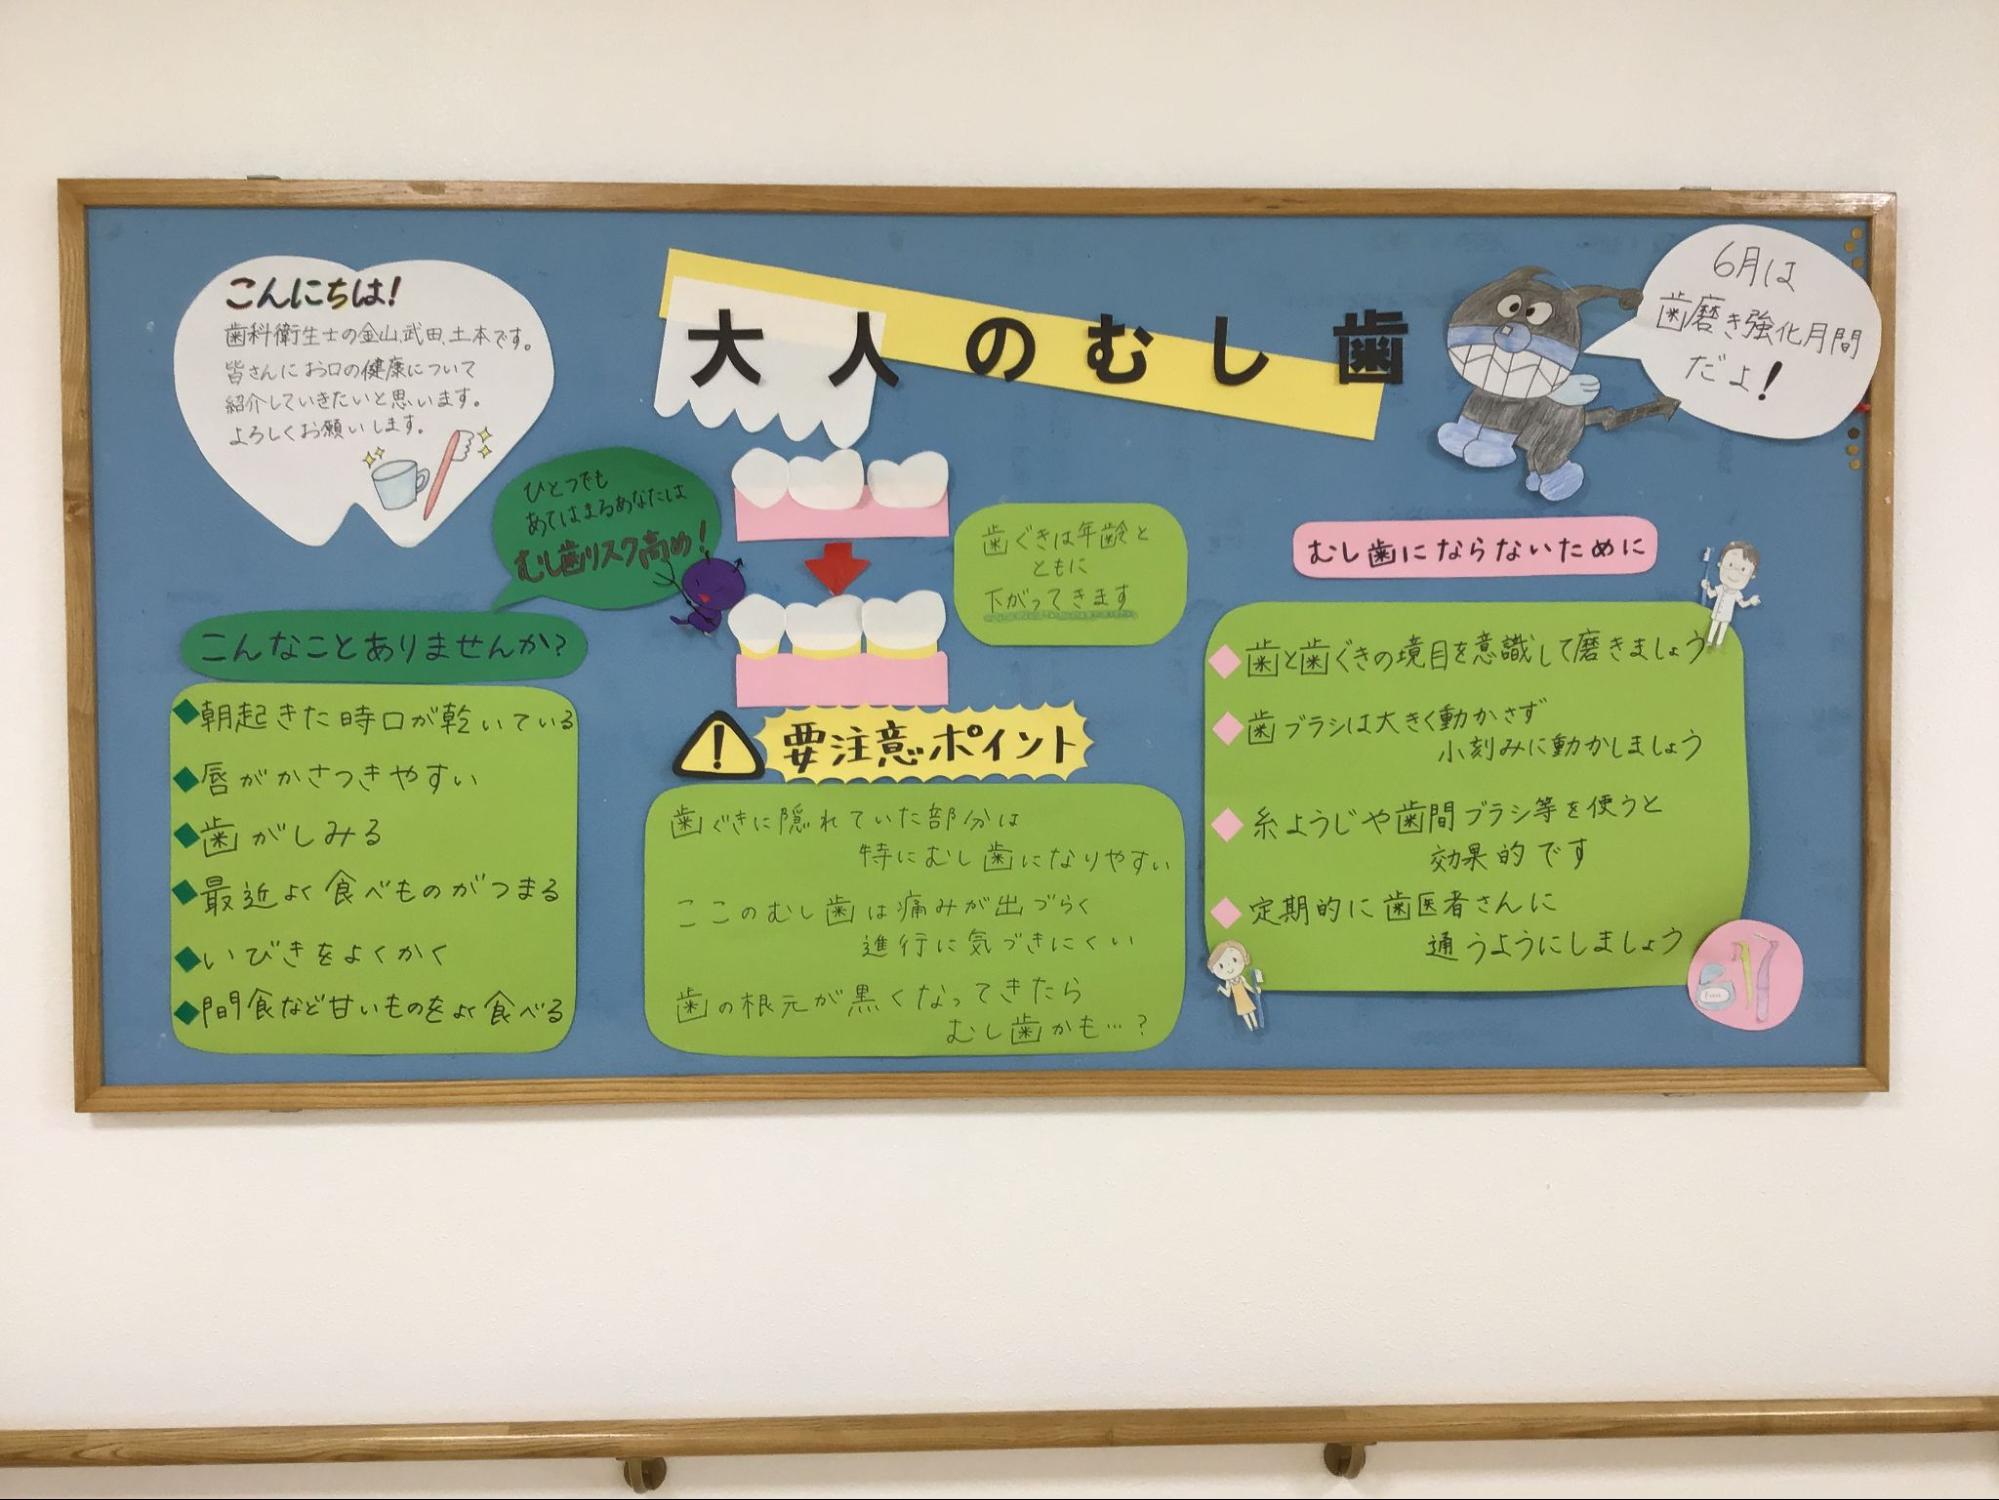 こんにちは!
歯科衛生士の金山、武田、土本です。
皆さんにお口の健康について
紹介していきたいと思います。
よろしくお願いします。
大人のむし歯
6月は
歯磨き強化月間
だよ!
ひとつでも
あてはまるあなたは
むし歯リスク高め!
こんなことありませんか?
◆朝起きた時口が乾いている
◆唇がかさつきやすい
◆歯がしみる
◆最近よく食べものがつまる
◆いびきをよくかく
◆間食など甘いものをよく食べる
歯ぐきは年齢と
ともに
下がってきます
要注意ポイント
歯ぐきに隠れていた部分は
特にむし歯になりやすい
ここのむし歯は痛みが出づらく
進行に気づきにくい
歯の根元が黒くなってきたら
むし歯かも…?
むし歯にならないために
◆歯と歯ぐきの境目を意識して磨きましょう
◆歯ブラシは大きく動かさず
小刻みに動かしましょう
◆糸ようじや歯間ブラシ等を使うと
効果的です
◆定期的に歯医者さんに
通うようにしましょう